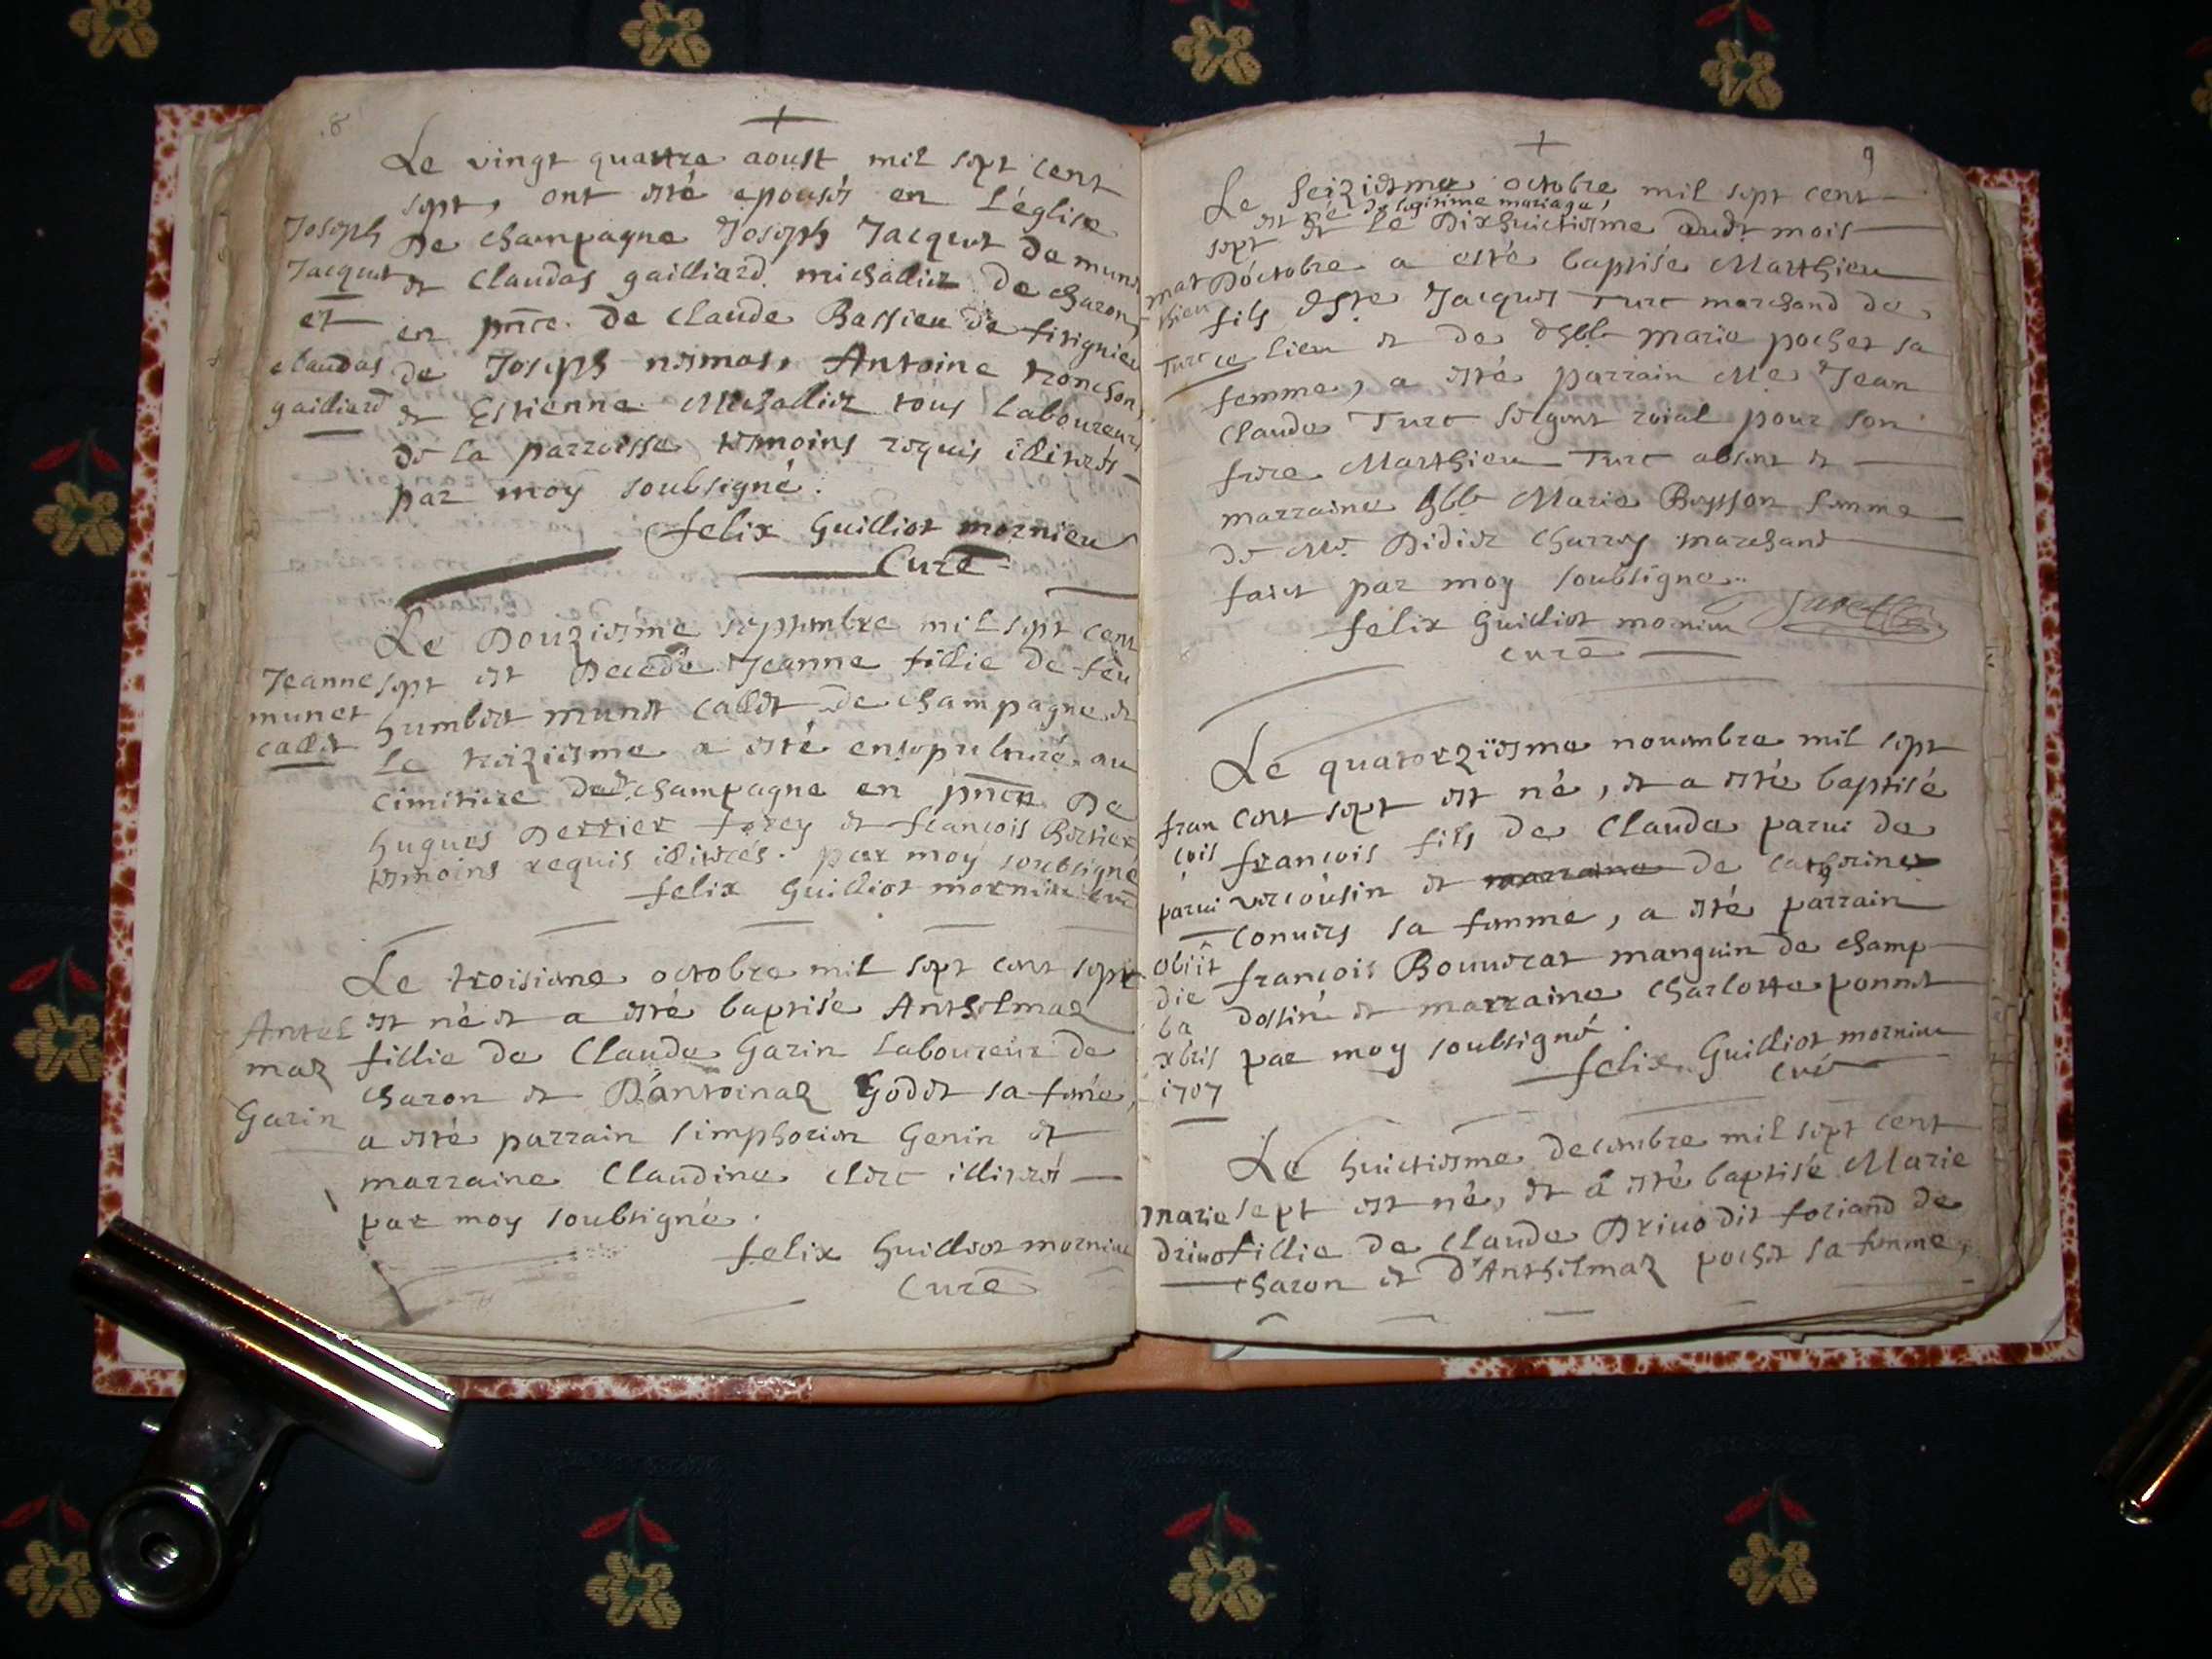 8
Le vingt quattre aoust mil sept cent
sept, ont esté epousés en L'église
Joseph
De Champagne Joseph Jacquet de munet
Jacquet
et Claudas gailliard michallier de charon
et
en pnce. de Claude Bassieu de
claudas
de Joseph nemos, Antoine tronchon
gailliard
et Estienne Michallier tous Laboureurs
de la parroisse tesmoins requis illiterés
par moy soubsigné.
felix Guilliot mornieu
Curé
Le Douziesme septembre mil sept cent
Jeanne
sept est Decedé Jeanne fillie de feu
munet
humbert munet callet de Champagne et
callet
Le treiziesme a esté ensepulturé au
cimitiere dudt champagne en pnce De
hugues Perrier et francois
tesmoins requis illiterés. par moy soubsigné
felix Guilliot mornieu curé
Le troisieme octobre mil sept cent sept
Antel
est né et a esté baptisée Anthelmaz
maz
fillie de Claude Garin Laboureur de
charon et D'antoinaz Godet sa fame,
Garin
a esté parrain simphorien Genin et
marraine Claudine clerc illiteré
par moy soubsigné.
felix Guilliot mornieu
Curé
9
Le Seiziesme octobre mil sept cent
est né de legitime mariage,
sept et Le Dixhuictiesme dudt mois
mat
D'octobre a esté baptisé Matthieu
thieu
fils Jacques Turc marchand de
Turc
ce lieu et de marie pochet sa
femme, a esté parrain Me Jean
Claude Turc sergent roial pour son
frere Matthieu Turc absent et
marraine Marie Buysson femme
de Me Didier Charroy marchand
faict par moy soubsigné.
felix Guilliot mornieu
curé
Le quatorziesme nouembre mil sept
fran
cent sept est né, et a esté baptisé
cois
francois fils de Claude parui de
parui
vercousin et de Catherine
conuers sa femme, a esté parrain
obiit
francois Bouuerat manguin de champ
die
dossin et marraine Charlotte ponnet
6a
xbris
par moy soubsigné.
1707
felix Guilliot mornieu
curé
Le huictiesme decembre mil sept cent
marie
sept est né, et a esté baptisée Marie
driuo
fillie de Claude Driuo dit foriand de
charon et d'Anthelmaz pochet sa femme,